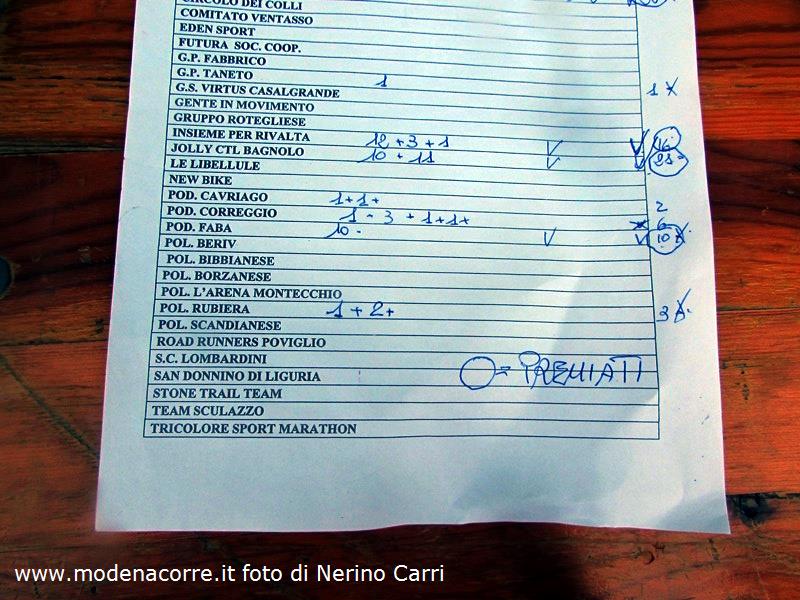 CIRCOLO DEI COLLI
COMITATO VENTASSO
EDEN SPORT
FUTURA SOC. COOP.
G.P. FABBRICO
G.P. TANETO
G.S. VIRTUS CASALGRANDE 1 1 X
GENTE IN MOVIMENTO
GRUPPO ROTEGLIESE
INSIEME PER RIVALTA
JOLLY CTL BAGNOLO 12 + 3 + 1 V V 16
LE LIBELLULE 10 + 11 V V 21
NEW BIKE
POD. CAVRIAGO 1+1+ 2
POD. CORREGGIO 1 - 3 + 1+1+ 6
POD. FABA 10 - V V 10 X
POL. BERIV
POL. BIBBIANESE
POL. BORZANESE
POL. L'ARENA MONTECCHIO
POL. RUBIERA 1 + 2+ 3
POL. SCANDIANESE
ROAD RUNNERS POVIGLIO
S.C. LOMBARDINI
SAN DONNINO DI LIGURIA = PREMIATI
STONE TRAIL TEAM
TEAM SCULAZZO
TRICOLORE SPORT MARATHON
www.modenacorre.it foto di Nerino Carri